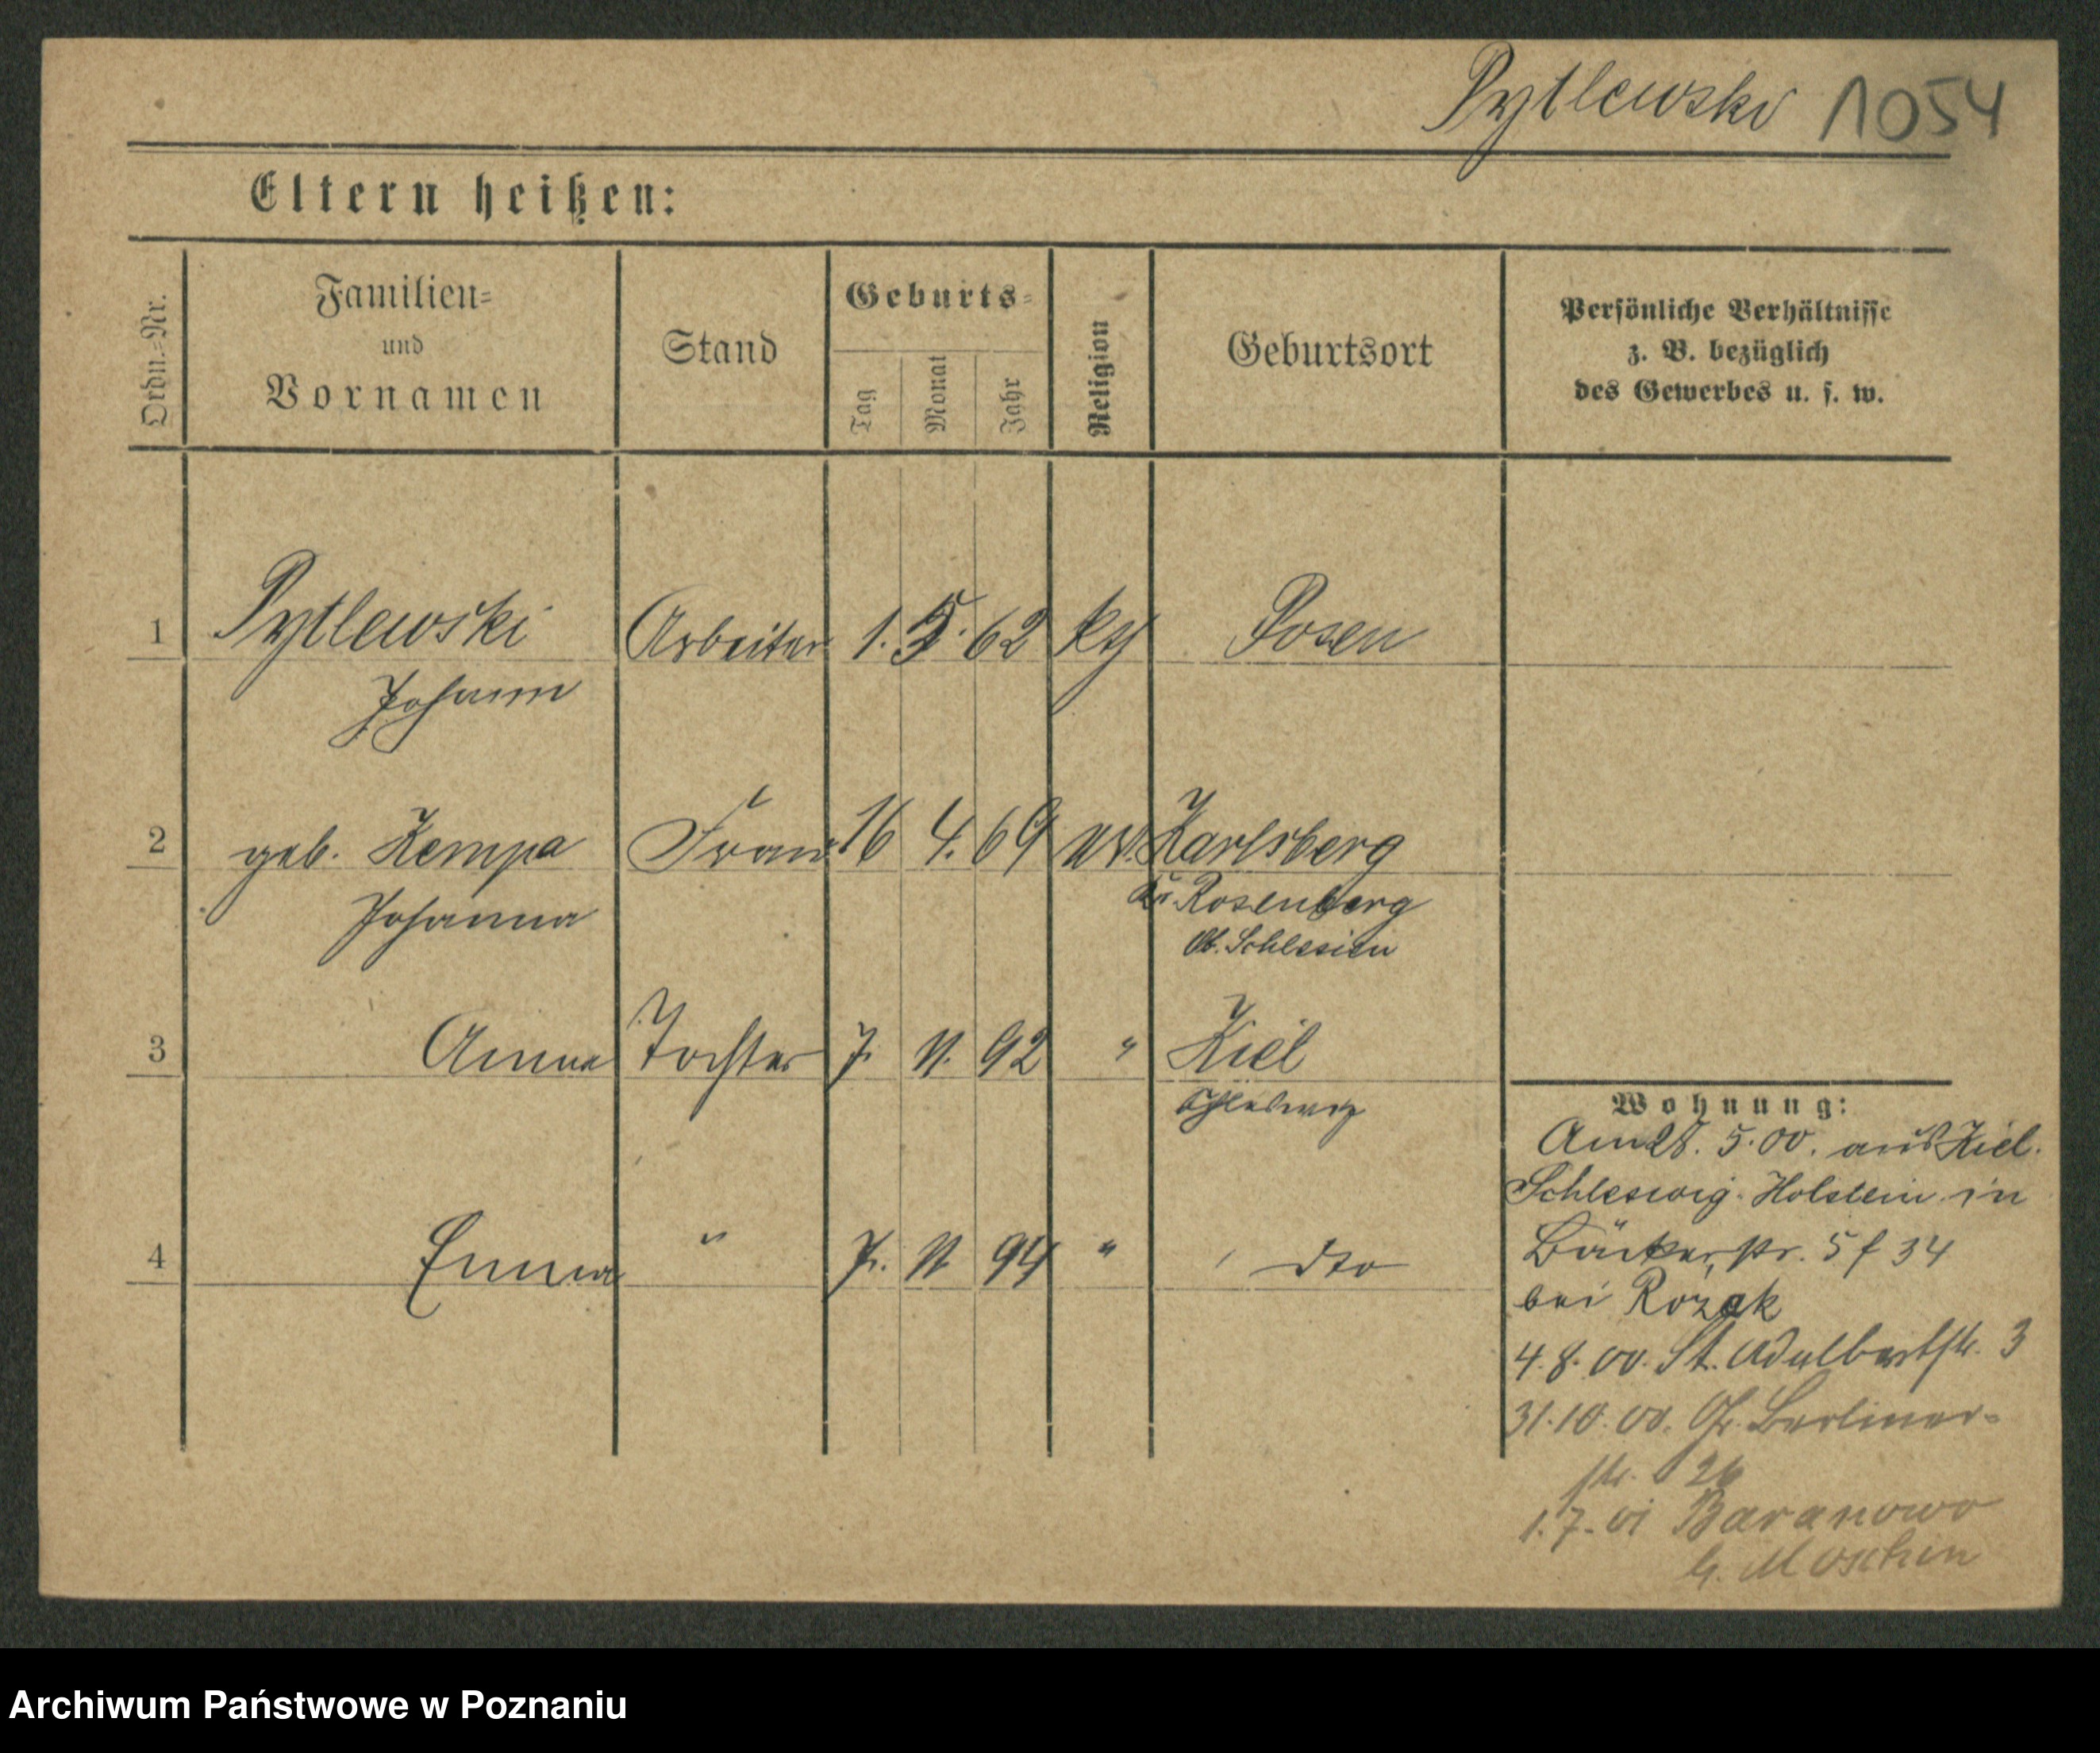 Pytlewski 1054
Eltern heißen:
Ordn.-Nr.
Familien-
und
Vornamen
Stand
Geburts-
Tag
Monat
Jahr
Religion
Geburtsort
Persönliche Verhältnisse
z. B. bezüglich
des Gewerbes u. s. w.
1 Pytlewski Arbeiter 1. 5. 62 Posen
Johann
2 geb. Kempa Frau 16 4. 69 Karlsberg
Johanna Kr. Rosenberg
Ob. Schlesien
3 Anna Tochter 7. 11. 92 " Kiel
Schleswig
4 Emma " 7. 11 94 " dto
Wohnung:
Am 28. 5. 00. aus Kiel.
Schleswig-Holstein in
Bäckerstr. 5 f 34
bei Rozak
4. 8. 00. St. Adalbertstr. 3
31. 10. 00. Gr. Berliner-
str. 26
1. 7. 01 Baranowo
b. Moschin
Archiwum Państwowe w Poznaniu